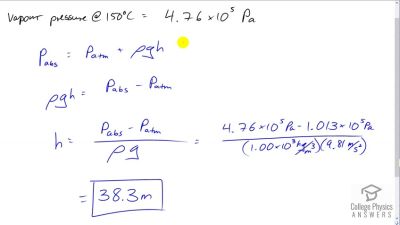 Vapour pressure @ 150°C = 4.76 × 10⁵ Pa
P_abs = P_atm + ρgh
ρgh = P_abs - P_atm
h = (P_abs - P_atm) / ρg = (4.76 × 10⁵ Pa - 1.013 × 10⁵ Pa) / ((1.00 × 10³ kg/m³)(9.81 m/s²))
= 38.3 m
College Physics
ANSWERS